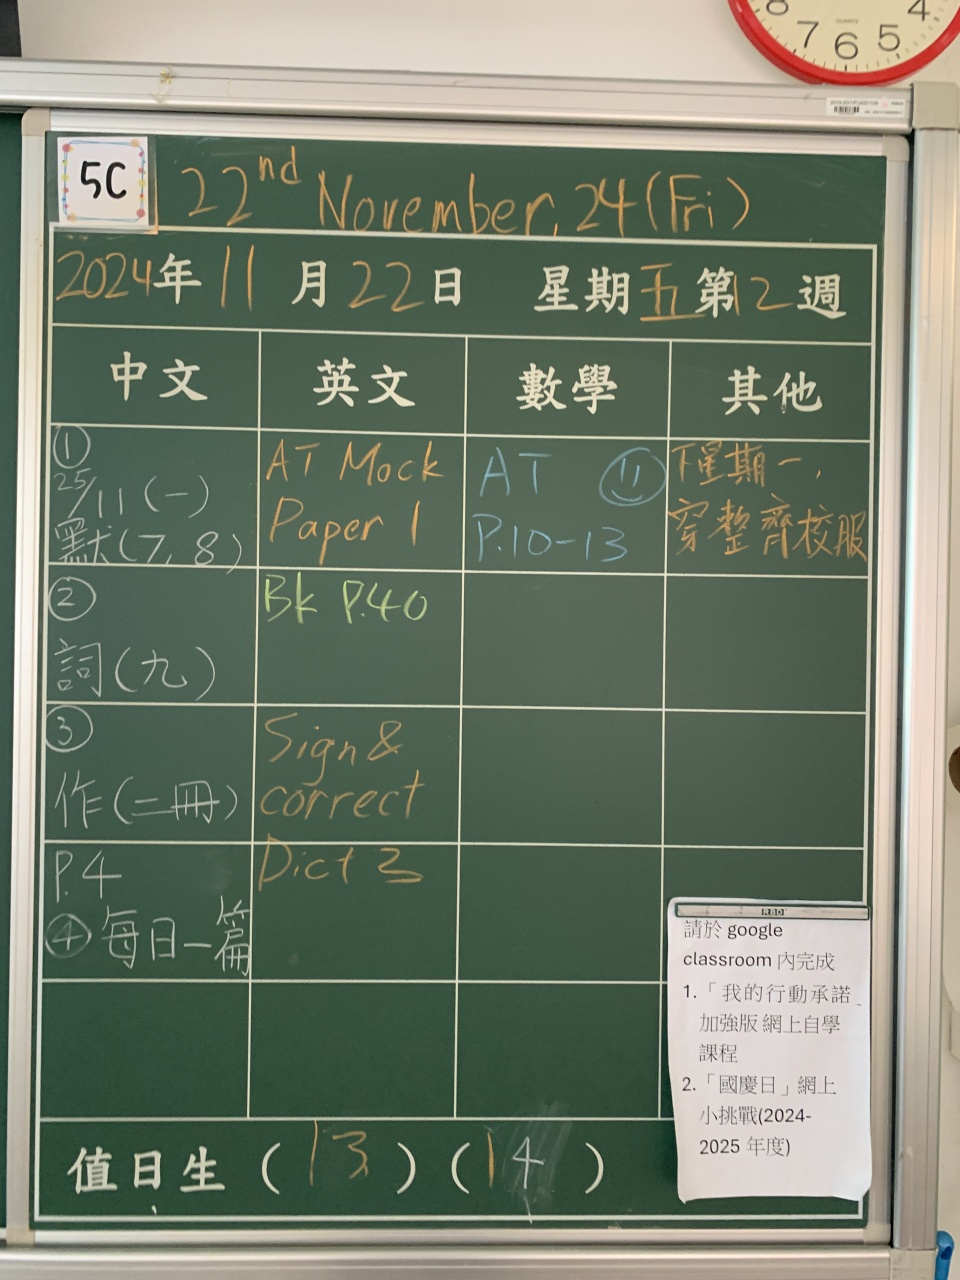 8 7 6 5 4
QUARTZ
5C
22nd November, 24 (Fri)
2024年 11 月 22 日 星期五 第12週
中文 英文 數學 其他
①
25/11 (一)
默(7, 8)
AT Mock
Paper 1
AT ⑪
P.10-13
下星期一,
穿整齊校服
②
詞(九)
Bk P.40
③
作(二冊)
Sign &
correct
P.4
④ 每日一篇
Dict 3
RBD
請於 google
classroom 內完成
1.「我的行動承諾
加強版 網上自學
課程
2.「國慶日」網上
小挑戰(2024-
2025 年度)
值日生 (13) (14)